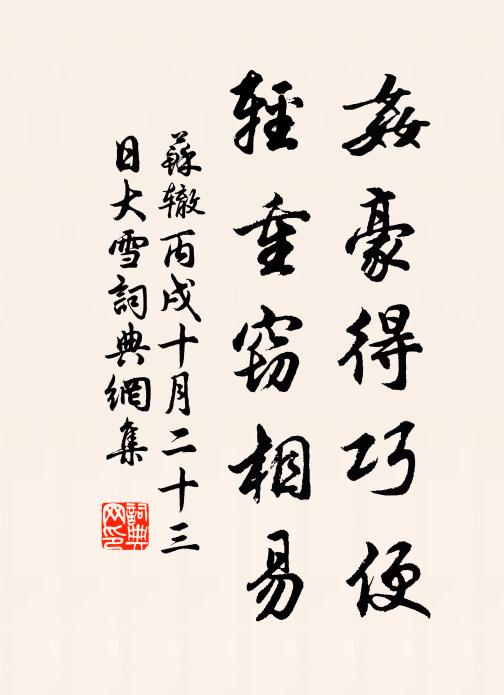 姦豪得巧便
輕重竊相易
蘇辙丙戌十月二十三
日大雪詞典網集
詞典网印